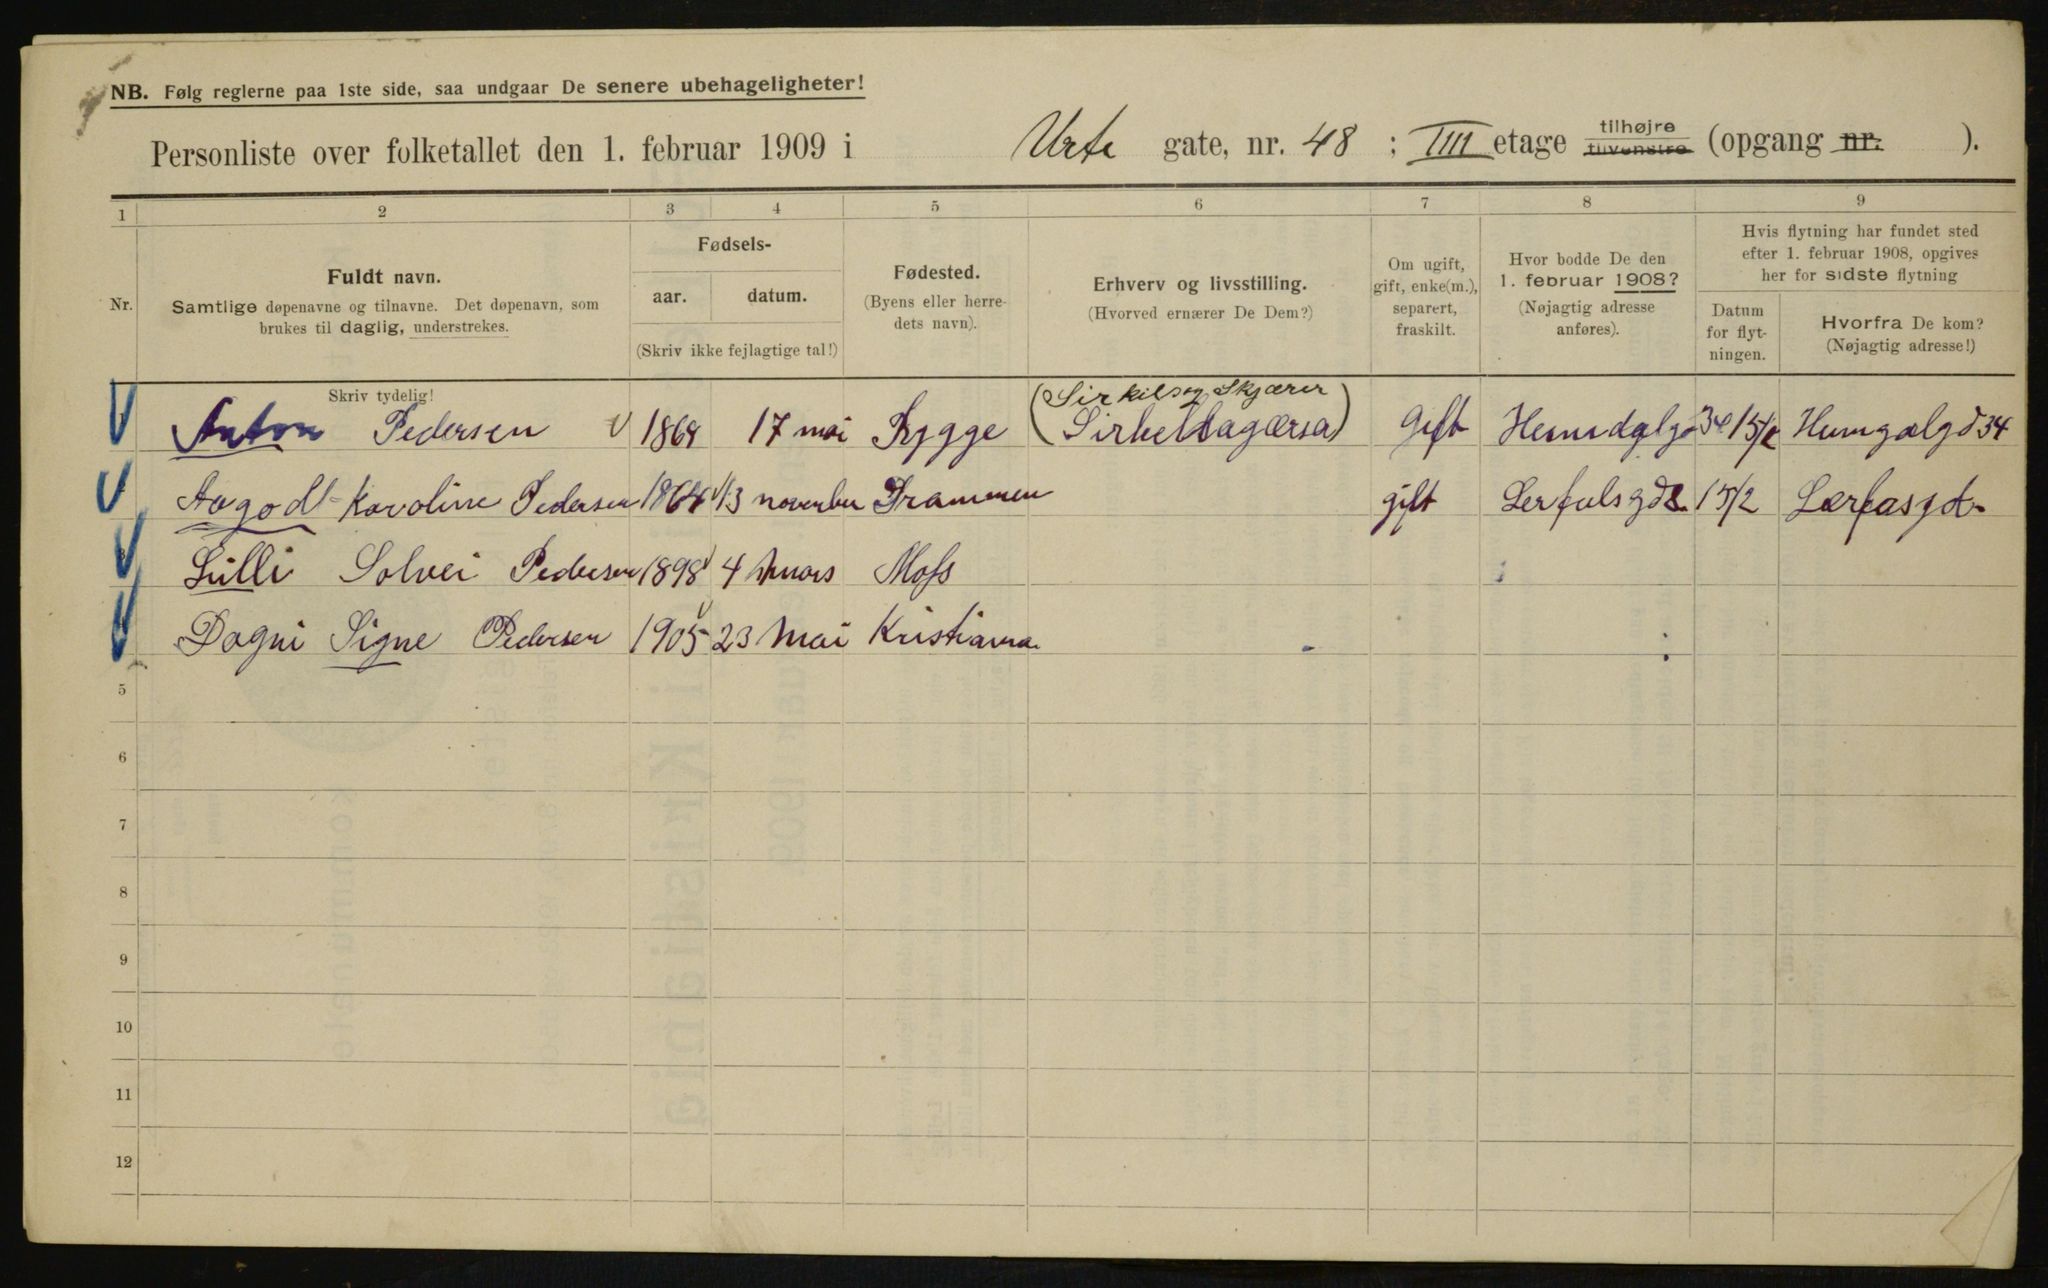 NB. Følg reglerne paa 1ste side, saa undgaar De senere ubehageligheter!
Personliste over folketallet den 1. februar 1909 i Urte gate, nr. 48 ; IIII etage tilhøjre tilvenstre (opgang nr. ).
1 2 3 4 5 6 7 8 9
Nr.
Fuldt navn.
Samtlige døpenavne og tilnavne. Det døpenavn, som
brukes til daglig, understrekes.
Skriv tydelig!
Fødsels-
aar. datum.
(Skriv ikke fejlagtige tal!)
Fødested.
(Byens eller herre-
dets navn).
Erhverv og livsstilling.
(Hvorved ernærer De Dem?)
Om ugift,
gift, enke(m.),
separert,
fraskilt.
Hvor bodde De den
1. februar 1908?
(Nøjagtig adresse
anføres).
Hvis flytning har fundet sted
efter 1. februar 1908, opgives
her for sidste flytning
Datum
for flyt-
ningen.
Hvorfra De kom?
(Nøjagtig adresse!)
(Sirkelsag Skjærer
Anton Pedersen 1864 17 mai Rygge Gift Hemdalgd 34
Karoline Pedersen 1864 13 november Drammen gift 15/2
Lilli Solvei Pedersen 1898 4 Mars Moss
Dagni Signe Pedersen 1905 23 Mai Kristiania
5
6
7
8
9
10
11
12